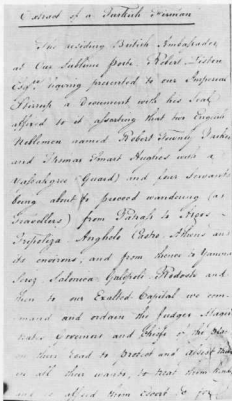 Extract of a Turkish Firman
The residing British Ambassador
at Our Sublime porte Robert Liston
Esqr. having presented to our Imperial
Stirrup a Document with his Seal
affixed to it asserting that two English
Noblemen named Robert Townley Parker
and Thomas Smart Hughes with a
(Guard) and four servants
being about to proceed wandering (as
Travellers) from to
Tripoliza Athens and
its environs, and from thence to
Salonica Galipoli Rodosto and
then to our Exalted Capital we com-
mand and ordain the Judges Magis
trates, Governors and Chiefs
on their road to protect and assist them
in all their wants, to treat them
and afford them escort